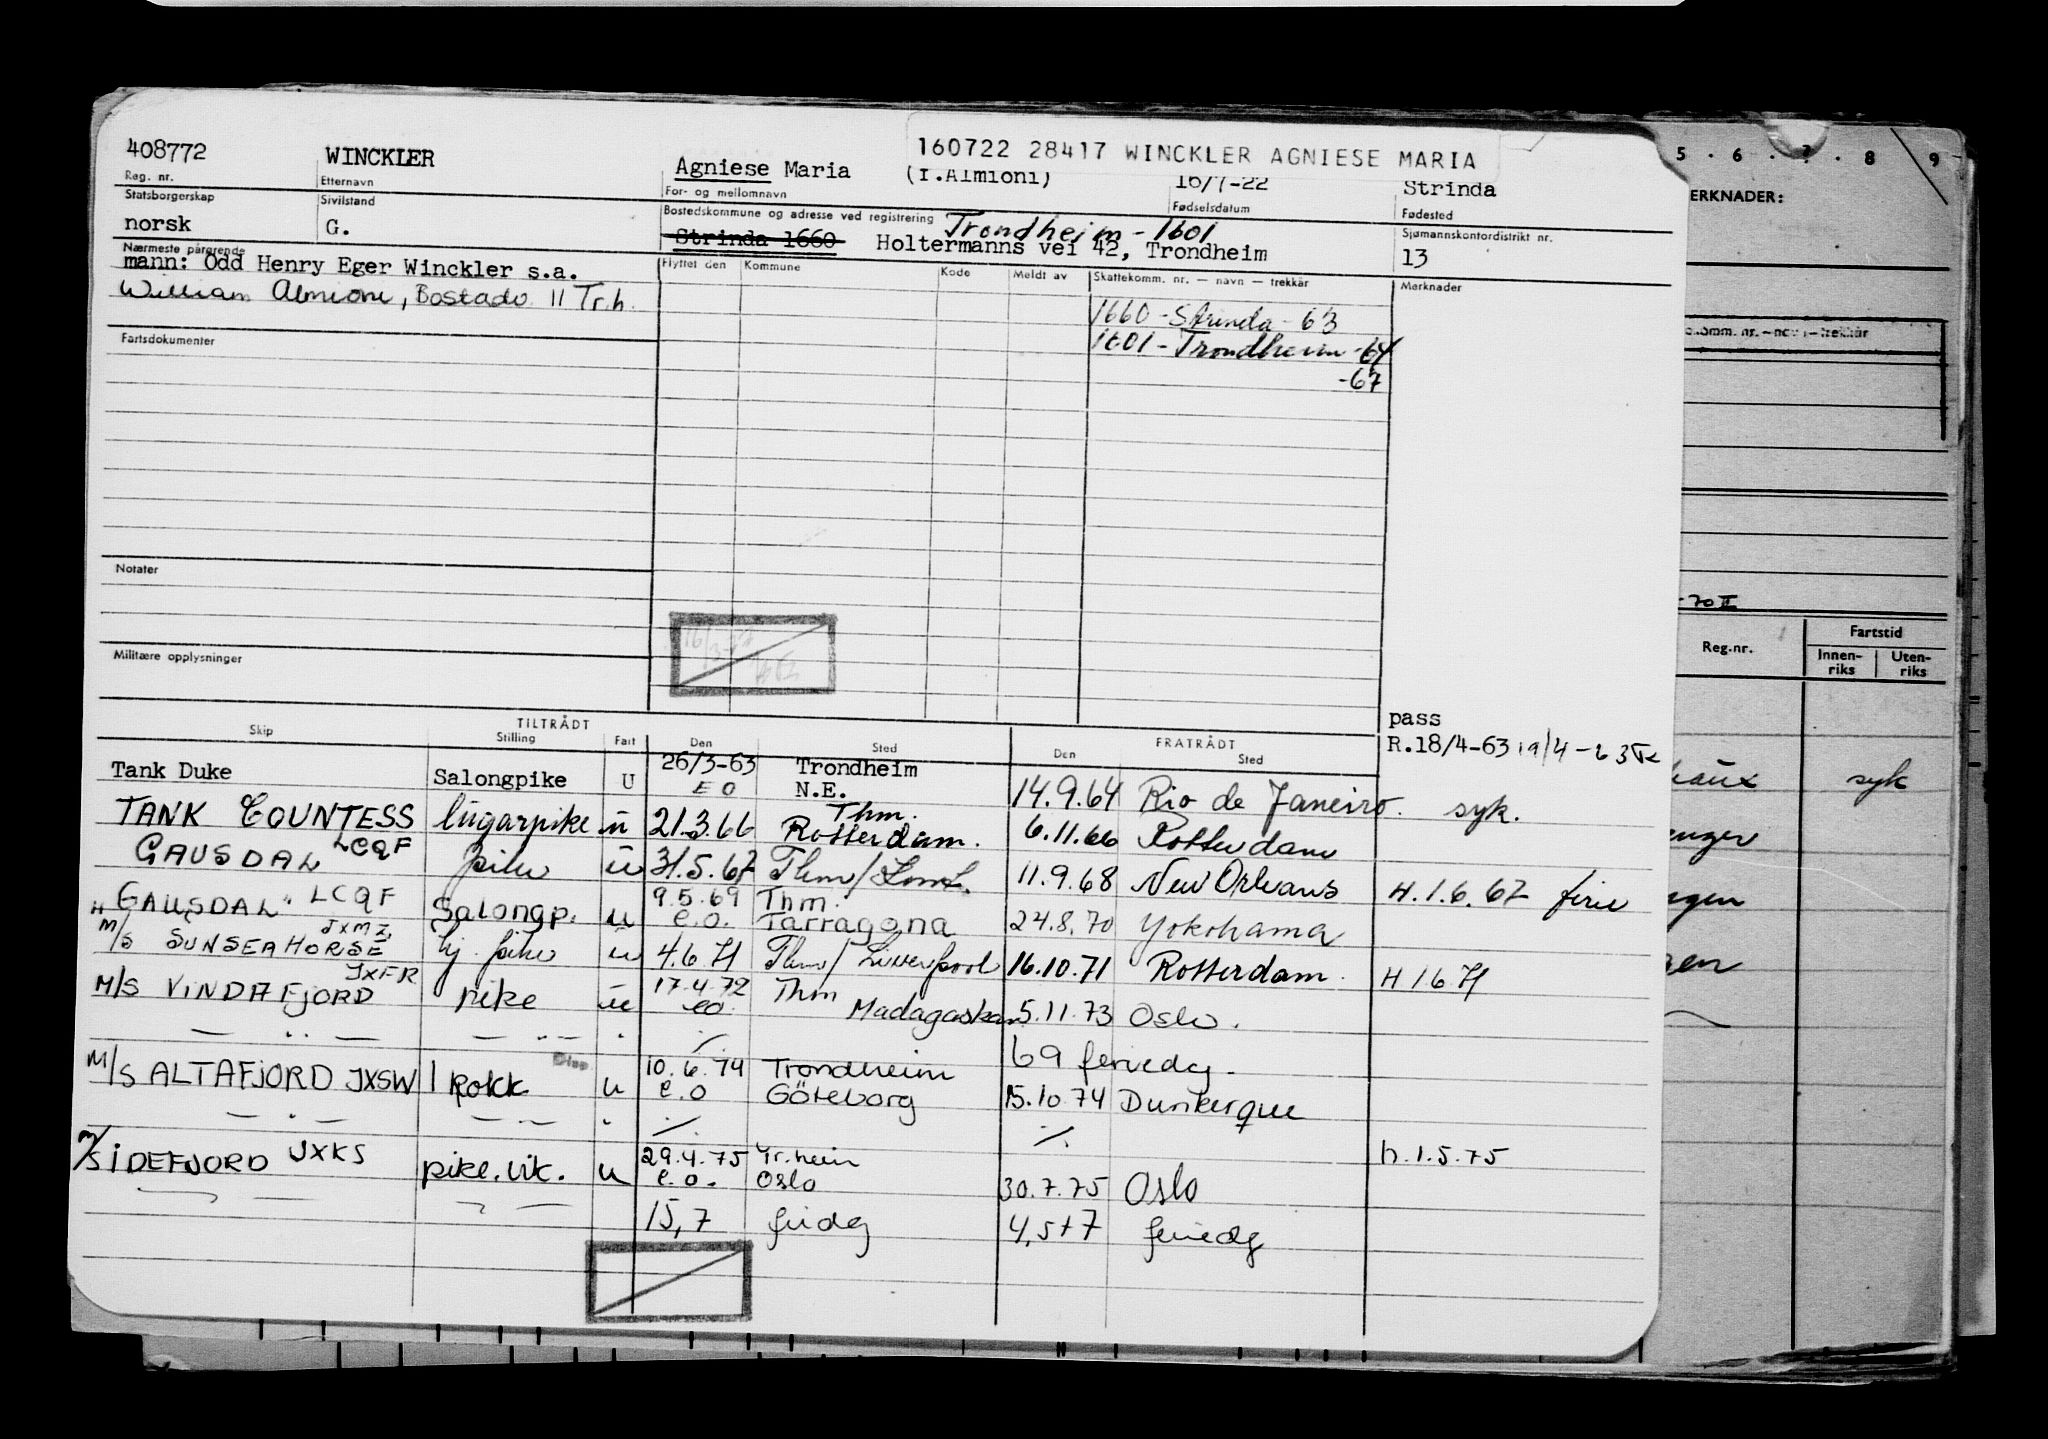 160722 28417 WINCKLER AGNIESE MARIA
408772 WINCKLER Agniese Maria (f.Almioni) 16/7-22 Strinda
Reg. nr. Etternavn For- og mellomnavn Fødselsdatum Fødested
Statsborgerskap Sivilstand Bostedskommune og adresse ved registrering Trondheim - 1601 Sjømannskontordistrikt nr.
norsk G. Strinda 1660 Holtermanns vei 42, Trondheim 13
Nærmeste pårørende Flyttet den Kommune Kode Meldt av Skattekomm. nr. — navn — trekkår Merknader
mann: Odd Henry Eger Winckler s.a.
William Almioni, Bostadv. 11 Tr.h.
1660 - Strinda - 63
1601 - Trondheim - 64
-67
Fartsdokumenter
Notater
Militære opplysninger
pass
R.18/4-63 19/4-63
TILTRÅDT FRATRÅDT
Skip Stilling Fart Den Sted Den Sted
Tank Duke Salongpike U 26/3-63 Trondheim
EO N.E. 14.9.64 Rio de Janeiro. syk.
TANK COUNTESS lugarpike u 21.3.66 Thm. Rotterdam. 6.11.66 Rotterdam
GAUSDAL LCQF pike u 31.5.67 Thm/ 11.9.68 New Orleans H.1.6.67 ferie
GAUSDAL LCQF Salongp. u 9.5.69 Thm.
e.o. Tarragona 24.8.70 Yokohama
M/S SUNSEAHORSE JXMZ hj. pike u 4.6.71 Thm/Liverpool 16.10.71 Rotterdam. H 1 6 71
M/S VINDAFJORD JXFR pike u 17.4.72 Thm
eo. Madagaskar 5.11.73 Oslo.
— .. — — .. — " ./. 69 feriedg.
M/S ALTAFJORD JXSW 1 kokk Disp u 10.6.74 Trondheim
e.o Göteborg 15.10.74 Dunkerque
— .. — — .. — " ./. ./.
M/S IDEFJORD JXKS pike.vik. u 29.4.75 Tr.heim h.1.5.75
e.o. Oslo 30.7.75 Oslo
15,7 fridg 4,5+7 feriedg
5 . 6 . 7 . 8 9
ERKNADER:
komm. nr. — navn — trekkår
-70 II
Reg.nr. Fartstid
Innen-riks Uten-riks
syk